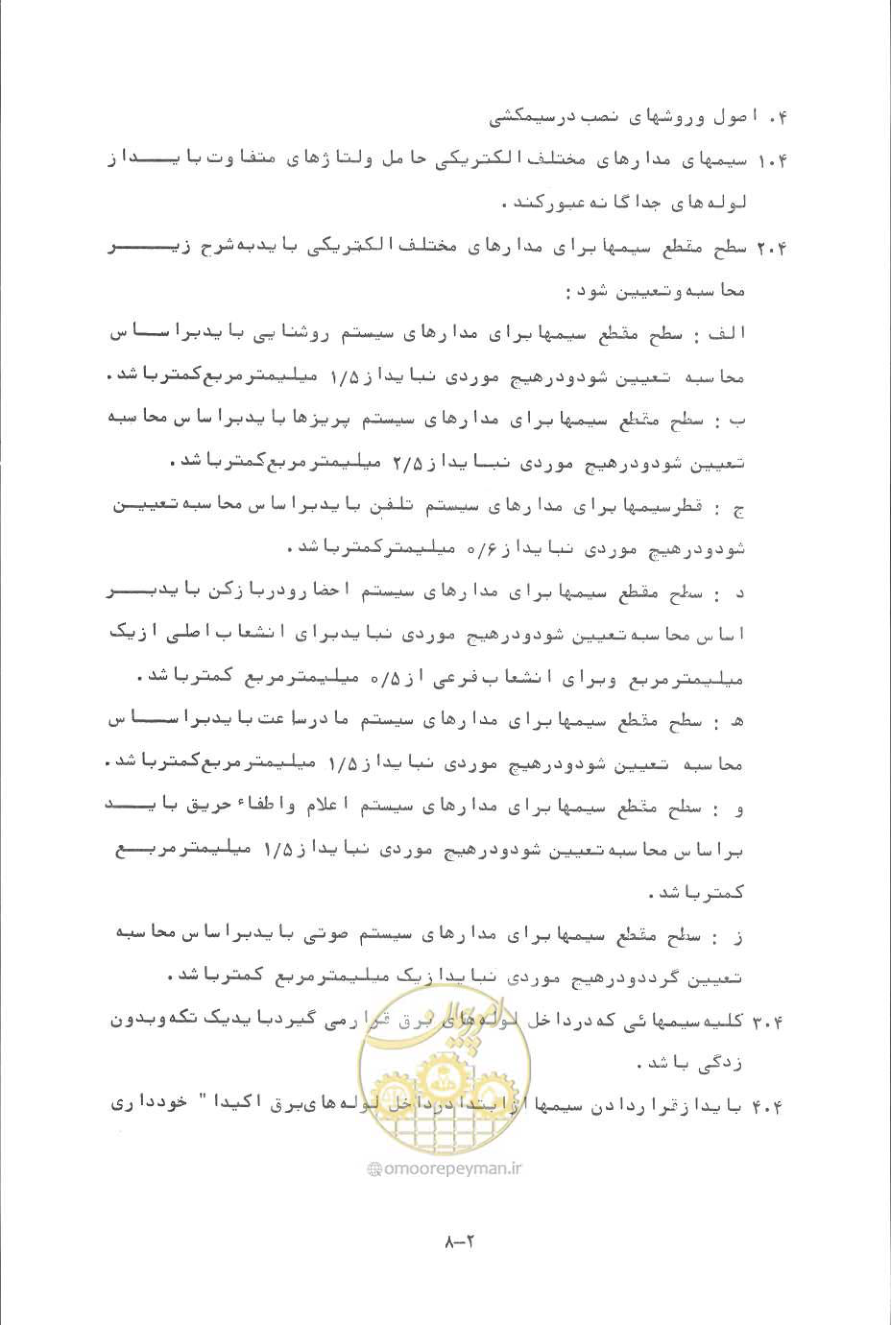 ۴. اصول وروشهای نصب درسیمکشی
۱.۴ سیمهای مدارهای مختلف الکتریکی حامل ولتاژهای متفاوت بایـــداز
لوله‌های جداگانه عبورکند .
۲.۴ سطح مقطع سیمها برای مدارهای مختلف الکتریکی بایدبه شرح زیــــر
محاسبه وتعیین شود :
الف : سطح مقطع سیمها برای مدارهای سیستم روشنایی بایدبراســـاس
محاسبه تعیین شودودرهیچ موردی نبایداز۱/۵ میلیمترمربع کمترباشد.
ب : سطح مقطع سیمها برای مدارهای سیستم پریزها بایدبراساس محاسبه
تعیین شودودرهیچ موردی نبـایداز۲/۵ میلیمترمربع کمترباشد.
ج : قطرسیمها برای مدارهای سیستم تلفن بایدبراساس محاسبه تعییـن
شودودرهیچ موردی نبایداز۰/۶ میلیمترکمترباشد.
د : سطح مقطع سیمها برای مدارهای سیستم احضارودربازکن بایدبـــر
اساس محاسبه تعیین شودودرهیچ موردی نبایدبرای انشعاب اصلی ازیک
میلیمترمربع وبرای انشعاب فرعی از۰/۵ میلیمترمربع کمترباشد.
هـ : سطح مقطع سیمها برای مدارهای سیستم مادرساعت بایدبراســـاس
محاسبه تعیین شودودرهیچ موردی نبایداز۱/۵ میلیمترمربع کمترباشد.
و : سطح مقطع سیمها برای مدارهای سیستم اعلام واطفاء حریق بایـــد
براساس محاسبه تعیین شودودرهیچ موردی نبایداز۱/۵ میلیمترمربــع
کمترباشد.
ز : سطح مقطع سیمها برای مدارهای سیستم صوتی بایدبراساس محاسبه
تعیین گرددودرهیچ موردی نبایدازیک میلیمترمربع کمترباشد.
۳.۴ کلیه سیمهائی که درداخل لوله‌های برق قرارمی گیردبایدیک تکه وبدون
زدگی باشد .
۴.۴ بایدازقراردادن سیمها ازابتدادرداخل لوله‌های برق اکیدا" خودداری
امور پیمان
omoorepeyman.ir
۸-۲